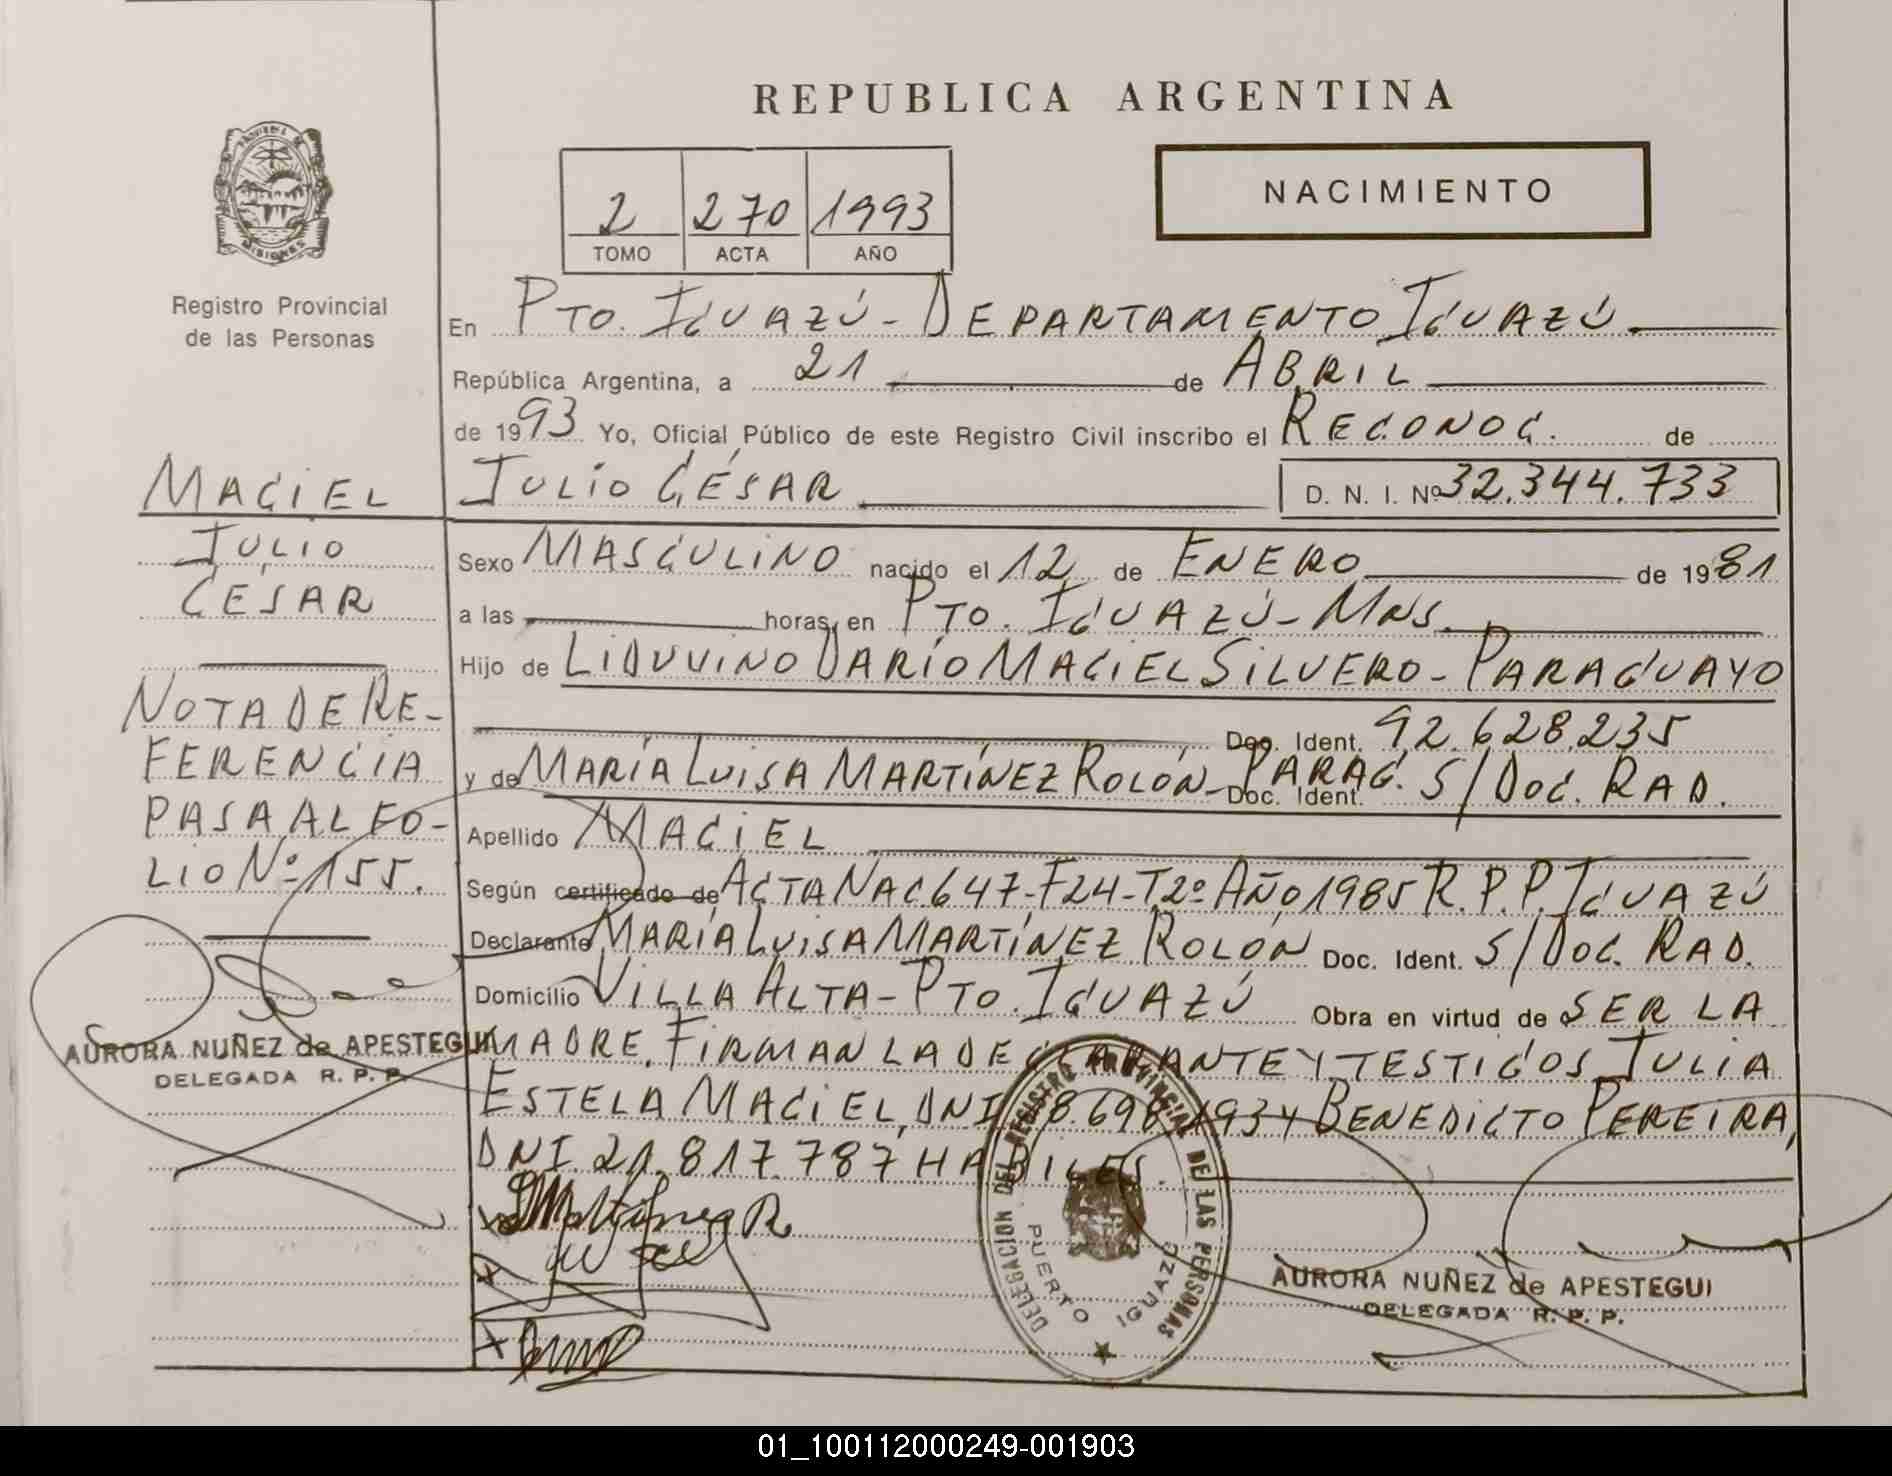 REPUBLICA ARGENTINA
NACIMIENTO
2 270 1993
TOMO ACTA AÑO
MISIONES
Registro Provincial
de las Personas
En PTO. IGUAZÚ - DEPARTAMENTO IGUAZÚ.
República Argentina, a 21 de ABRIL
de 1993 Yo, Oficial Público de este Registro Civil inscribo el RECONOC. de
JULIO CÉSAR D. N. I. Nº 32.344.733
MACIEL
JULIO
CÉSAR
NOTA DE RE-
FERENCIA
PASA AL FO-
LIO Nº 155.
AURORA NUÑEZ de APESTEGUI
DELEGADA R. P. P.
Sexo MASCULINO nacido el 12 de ENERO de 1981
a las horas, en PTO. IGUAZÚ - MNS.
Hijo de LIDUVINO DARÍO MACIEL SILVERO - PARAGUAYO
Doc. Ident. 92.628.235
y de MARÍA LUISA MARTÍNEZ ROLÓN - PARAG. Doc. Ident. S/DOC. RAD.
Apellido MACIEL
Según certificado de ACTA NAC 647-F24-T2º AÑO 1985 R.P.P. IGUAZÚ
Declarante MARÍA LUISA MARTÍNEZ ROLÓN Doc. Ident. S/DOC. RAD.
Domicilio VILLA ALTA - PTO. IGUAZÚ Obra en virtud de SER LA
MADRE. FIRMAN LA DECLARANTE Y TESTIGOS JULIA
ESTELA MACIEL, DNI 8.698.193 Y BENEDICTO PEREIRA,
DNI. 21.817.787 HABILES.
DELEGACION DEL REGISTRO PROVINCIAL DE LAS PERSONAS
PUERTO IGUAZU
AURORA NUÑEZ de APESTEGUI
DELEGADA R. P. P.
01_100112000249-001903